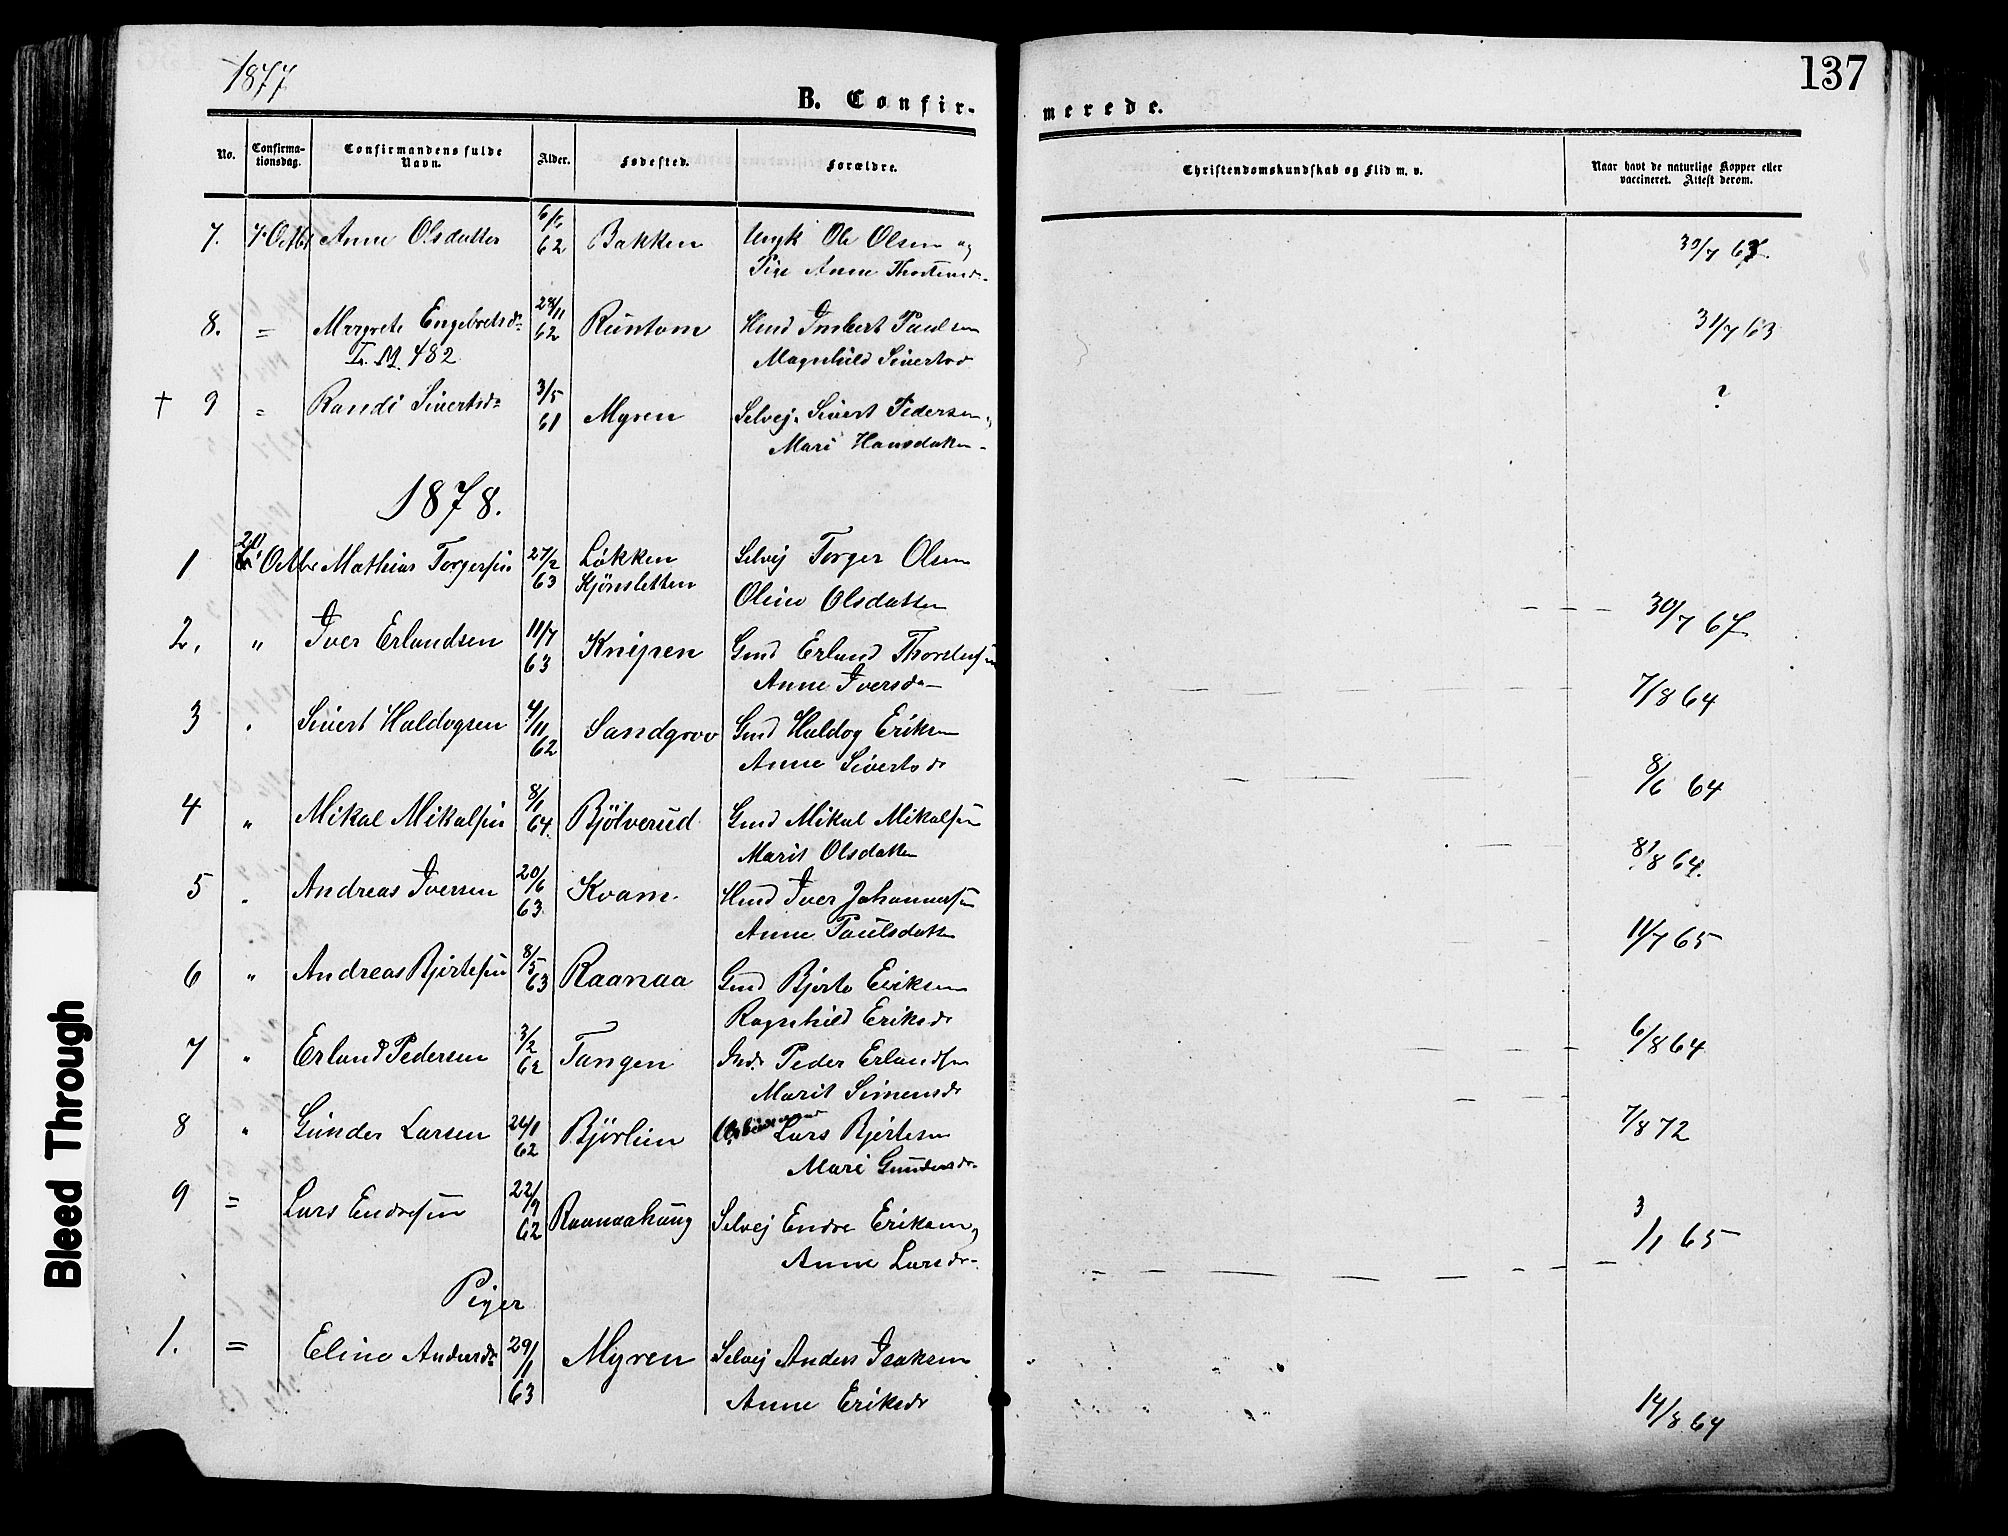 1877
137
B. Confir-
merede.
No.
Confirma-
tionsdag.
Confirmandens fulde
Navn.
Alder.
Fødested.
Forældre.
Christendomskundskab og Flid m. v.
Naar havt de naturlige Kopper eller
vaccineret. Attest derom.
7. 7 Octbr Anne Olsdatter 62 Bakken Ungk Ole Olsen og 30/7 67
Pige Anne
8. = Margrete Engebretsdr 28/11 62 Runtom Hmd Imbert Paulsen 31/7 63
482 Magnhild Sivertsdr
† 9 = Randi Sivertsdr 3/5 61 Myren Selvej. Sivert Pedersen ?
Mari Hansdatter
1878.
1 20 Octbr Mathias Torgersen 27/2 63 Løkken Selvej Torger Olsen
Kjønsletten Oline Olsdatter 30/7 67
2. " Iver Erlandsen 11/7 63 Knipen Gmd Erland Thorstensen
Anne Iversdr 7/8 64
3 " Sivert Haldogsen 4/11 62 Sandgrov Gmd Haldog Eriksen
Anne Sivertsdr 8/6 64
4 " Mikal Mikalsen 8/1 64. Bjölverud Gmd Mikal Mikalsen
Marit Olsdatter 8/8 64.
5 " Andreas Iversen 20/6 63 Kvam Hmd Iver Johannessen
Anne Paulsdatter 11/7 65
6 " Andreas Bjørtesen 8/5 63 Raanaa Gmd Bjørte Eriksen
Ragnhild Eriksdr 6/8 64
7 " Erland Pedersen 3/2 62 Tangen Ind. Peder Erlandsen
Marit Simensdr
8 " Gunder Larsen 26/1 62 Bjørlien Lars Bjørtesen 7/8 72
Mari Gundersdr
9 = Lars Endresen 22/9 62 Raanaahaug Selvej Endre Eriksen 3/1 65
Anne Larsdr
Piger
1. = Eline Andersdr 29/1 63 Myren Selvej Anders Isaksen
Anne Eriksdr 14/8 64
Bleed Through